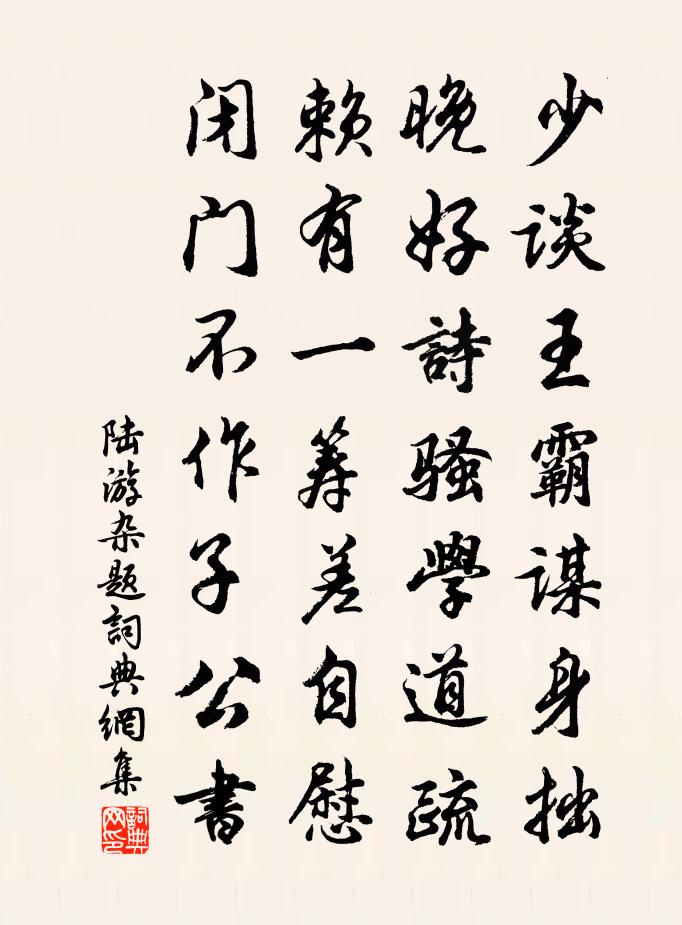 少谈王霸谋身拙
晚好詩骚學道疏
赖有一筹差自慰
闭门不作子公書
陆游杂题詞典網集
詞典网印